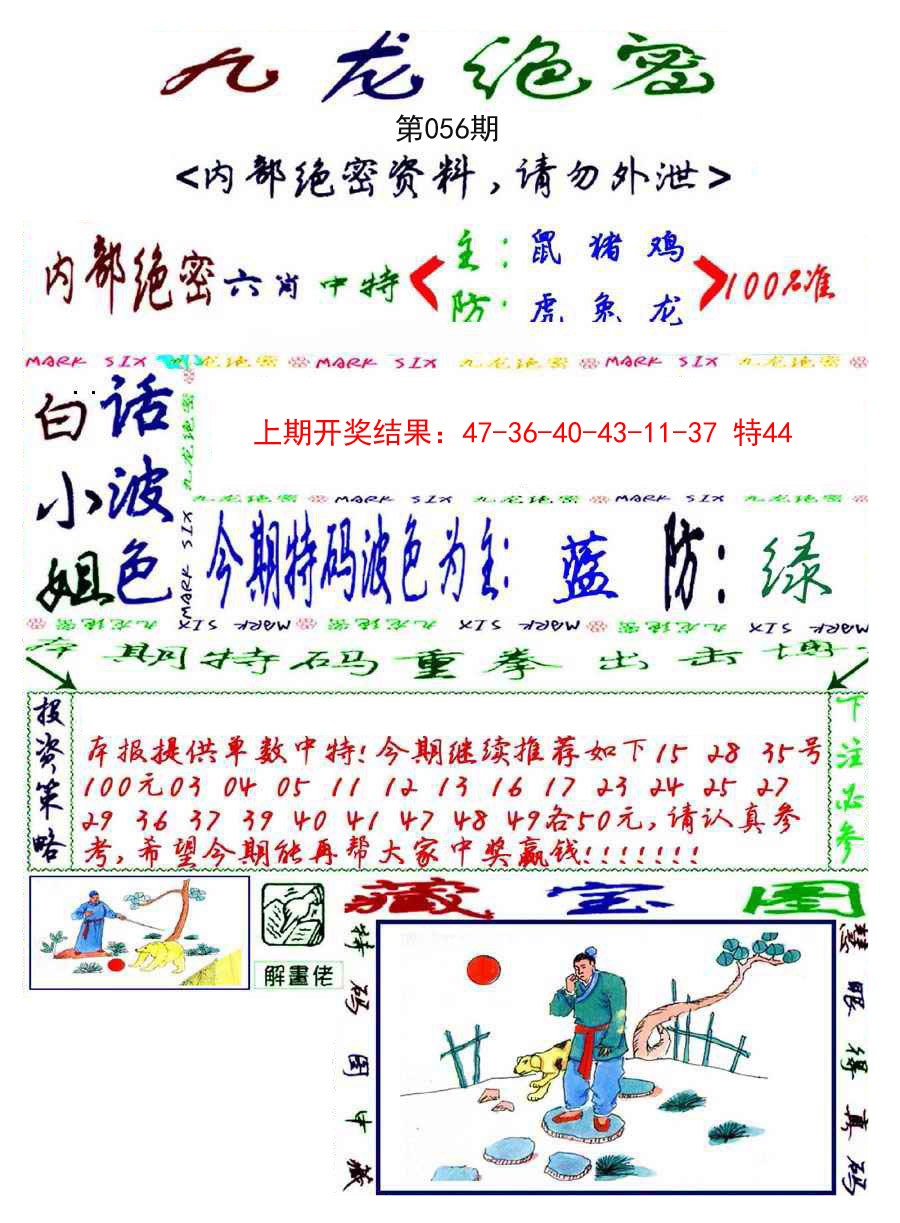 九龙绝密
第056期
<内部绝密资料,请勿外泄>
内部绝密六肖中特
主:鼠 猪 鸡
防:虎 兔 龙
100%准
MARK SIX 九龙绝密 MARK SIX 九龙绝密 MARK SIX
白话
小波
姐色
九龙绝密
MARK SIX
上期开奖结果：47-36-40-43-11-37 特44
九龙绝密 MARK SIX 九龙绝密 MARK SIX 九龙绝密
今期特码波色为主: 蓝 防: 绿
九龙绝密 MARK SIX 九龙绝密 MARK SIX 九龙绝密 MARK SIX
本期特码重拳出击
投资策略
本报提供单数中特!今期继续推荐如下15 28 35号
100元03 04 05 11 12 13 16 17 23 24 25 27
29 36 37 39 40 41 47 48 49各50元,请认真参
考,希望今期能再帮大家中奖赢钱!!!!!!!
下注必参
藏宝图
解畫佬
特码图中藏
慧眼得真码